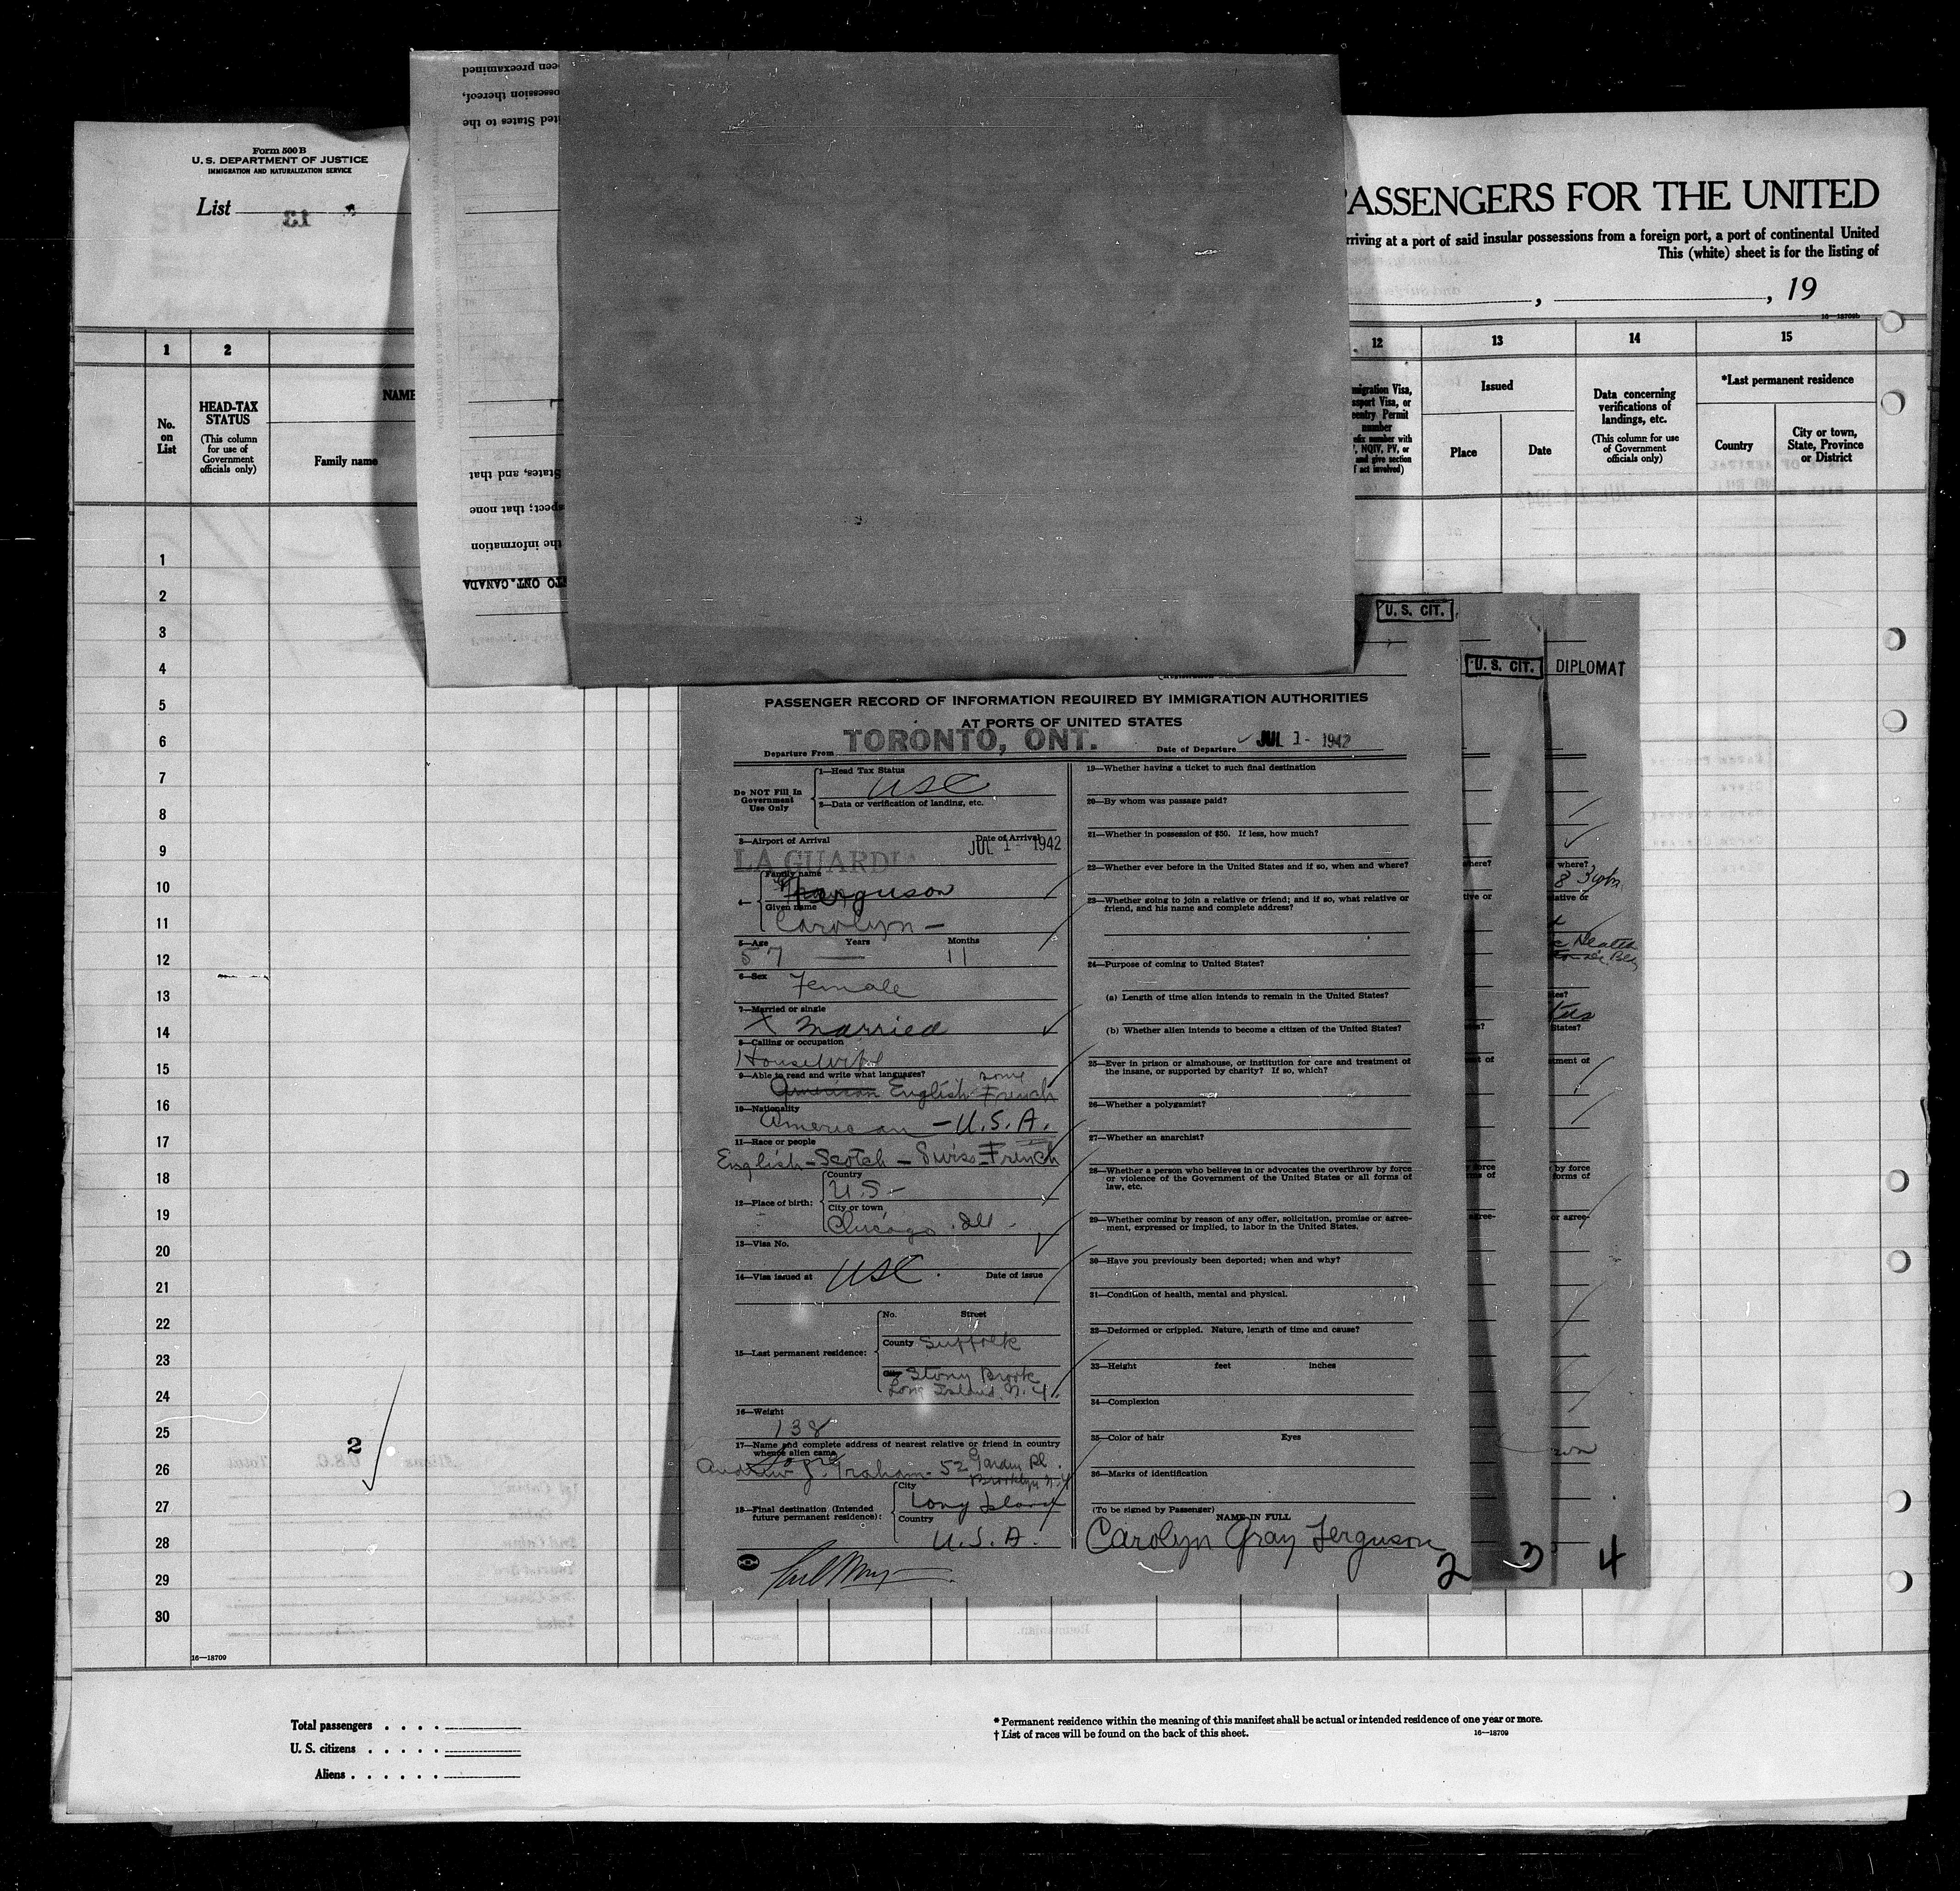 Form 500 B
U. S. DEPARTMENT OF JUSTICE
IMMIGRATION AND NATURALIZATION SERVICE
List
13
een preexamined
ossession thereof,
ited States to the
States, and that
spect; that none
the information
TO ONT. CANADA
PASSENGERS FOR THE UNITED
rriving at a port of said insular possessions from a foreign port, a port of continental United
This (white) sheet is for the listing of
, , 19
16—18709b
1 2 12 13 14 15
No. on List
HEAD-TAX STATUS
(This column for use of Government officials only)
NAME
Family name
migration Visa,
ssport Visa, or
eentry Permit
number
fix number with
, NQIV, PV, or
and give section
f act involved)
Issued
Place
Date
Data concerning verifications of landings, etc.
(This column for use of Government officials only)
*Last permanent residence
Country
City or town, State, Province or District
1
2
3
4
5
6
7
8
9
10
11
12
13
14
15
16
17
18
19
20
21
22
23
24
25
26
27
28
29
30
2
16—18709
U. S. CIT.
U. S. CIT.
DIPLOMAT
PASSENGER RECORD OF INFORMATION REQUIRED BY IMMIGRATION AUTHORITIES
AT PORTS OF UNITED STATES
Departure From TORONTO, ONT. Date of Departure JUL 1 - 1942
Do NOT Fill In Government Use Only
1—Head Tax Status
USC
2—Data or verification of landing, etc.
3—Airport of Arrival Date of Arrival
LA GUARDI JUL 1 - 1942
4—
Family name
Ferguson
Given name
Carolyn —
5—Age Years Months
57 — 11
6—Sex Female
7—Married or single
X Married
8—Calling or occupation
Housewife
9—Able to read and write what languages?
American English some French
10—Nationality
American — U.S.A.
11—Race or people
English - Scotch — Swiss-French
12—Place of birth:
Country
U.S. -
City or town
Chicago, Ill -
13—Visa No.
14—Visa issued at USC. Date of issue
15—Last permanent residence:
No. Street
County Suffolk
City Stony Brook
Long Island. N.Y.
16—Weight
138
17—Name and complete address of nearest relative or friend in country
whence alien came
Andrew J. Graham - 52 Garden Pl.
Brooklyn N.Y
18—Final destination (Intended future permanent residence):
City
Long Island
Country
U.S.A.
19—Whether having a ticket to such final destination
20—By whom was passage paid?
21—Whether in possession of $50. If less, how much?
22—Whether ever before in the United States and if so, when and where?
23—Whether going to join a relative or friend; and if so, what relative or
friend, and his name and complete address?
24—Purpose of coming to United States?
(a) Length of time alien intends to remain in the United States?
(b) Whether alien intends to become a citizen of the United States?
25—Ever in prison or almshouse, or institution for care and treatment of
the insane, or supported by charity? If so, which?
26—Whether a polygamist?
27—Whether an anarchist?
28—Whether a person who believes in or advocates the overthrow by force
or violence of the Government of the United States or all forms of
law, etc.
29—Whether coming by reason of any offer, solicitation, promise or agree-
ment, expressed or implied, to labor in the United States.
30—Have you previously been deported; when and why?
31—Condition of health, mental and physical.
32—Deformed or crippled. Nature, length of time and cause?
33—Height feet inches
34—Complexion
35—Color of hair Eyes
36—Marks of identification
(To be signed by Passenger)
NAME IN FULL
Carolyn Gray Ferguson
2
3
4
Total passengers . . . .
U. S. citizens . . . . .
Aliens . . . . . .
* Permanent residence within the meaning of this manifest shall be actual or intended residence of one year or more.
† List of races will be found on the back of this sheet.
16—18709